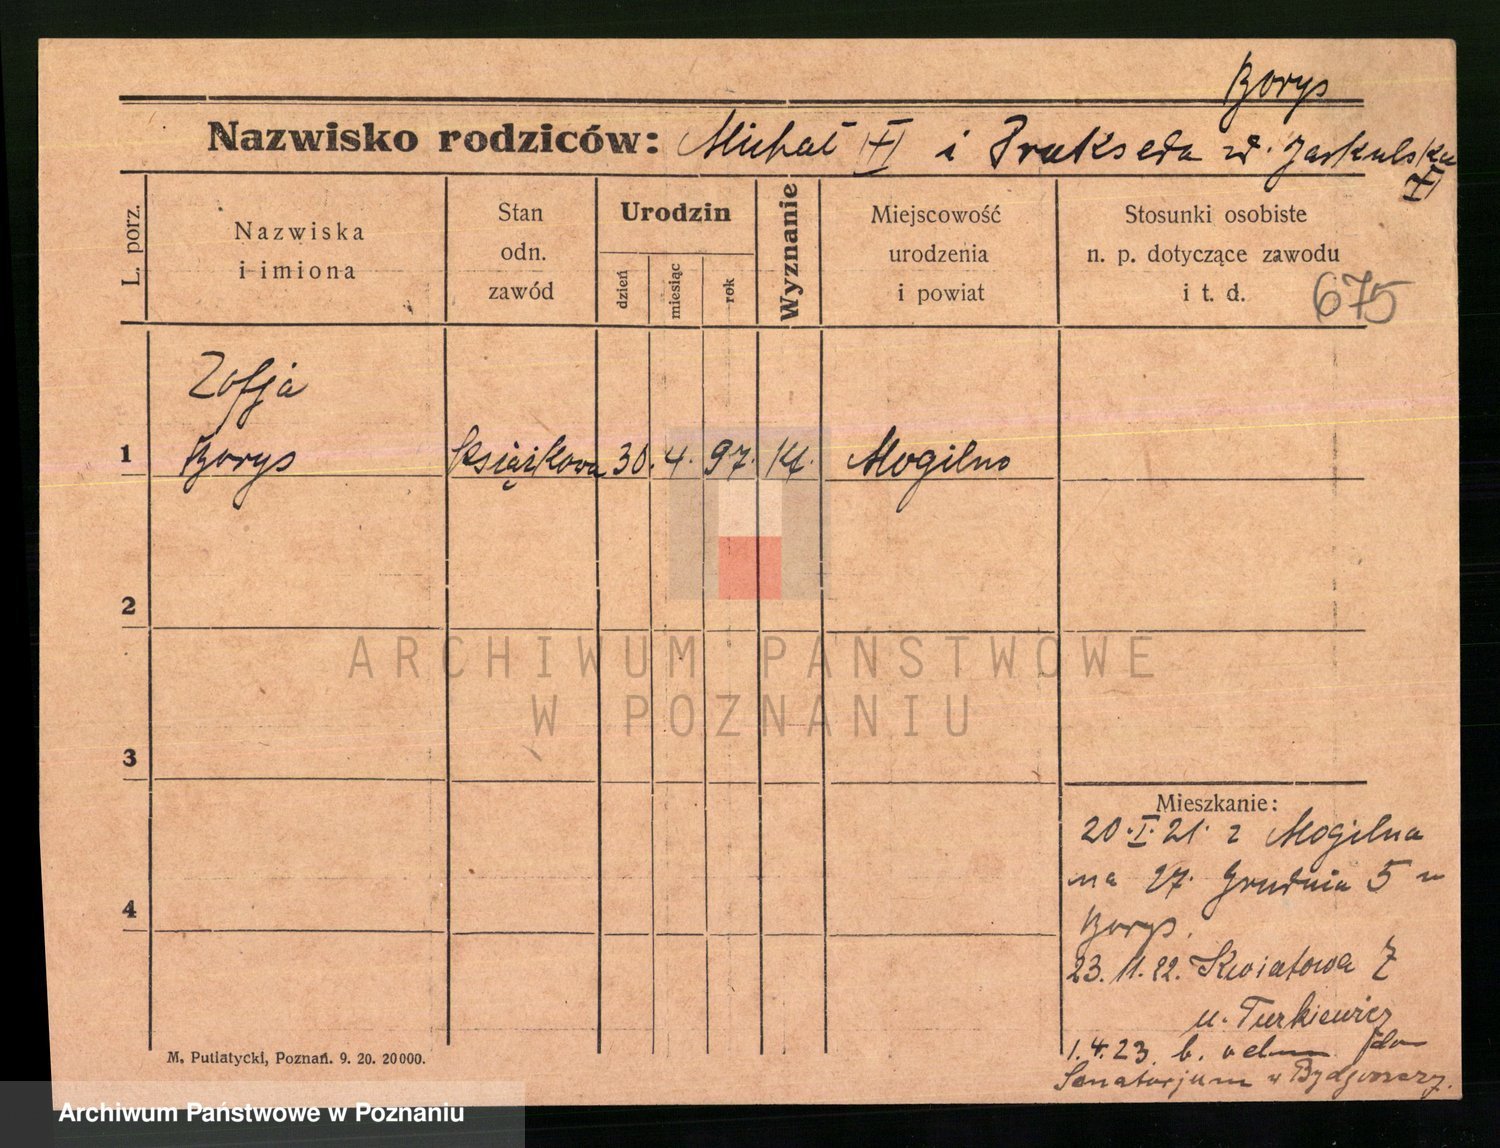 Borys
Nazwisko rodziców: Michał (†) i Prakseda zd. Jaskulska (†)
L. porz.
Nazwiska
i imiona
Stan
odn.
zawód
Urodzin
dzień
miesiąc
rok
Wyznanie
Miejscowość
urodzenia
i powiat
Stosunki osobiste
n. p. dotyczące zawodu
i t. d.
675
Zofja
1 Borys książkowa 30. 4. 97. kt. Mogilno
2
3
4
ARCHIWUM PAŃSTWOWE
W POZNANIU
Mieszkanie:
20.I.21. z Mogilna
na 27. Grudnia 5 u
Borys.
23.11.22. Kwiatowa 7
u. Turkiewicz
1.4.23. b. do
Sanatorjum w Bydgoszczy.
M. Putiatycki, Poznań. 9. 20. 20000.
Archiwum Państwowe w Poznaniu